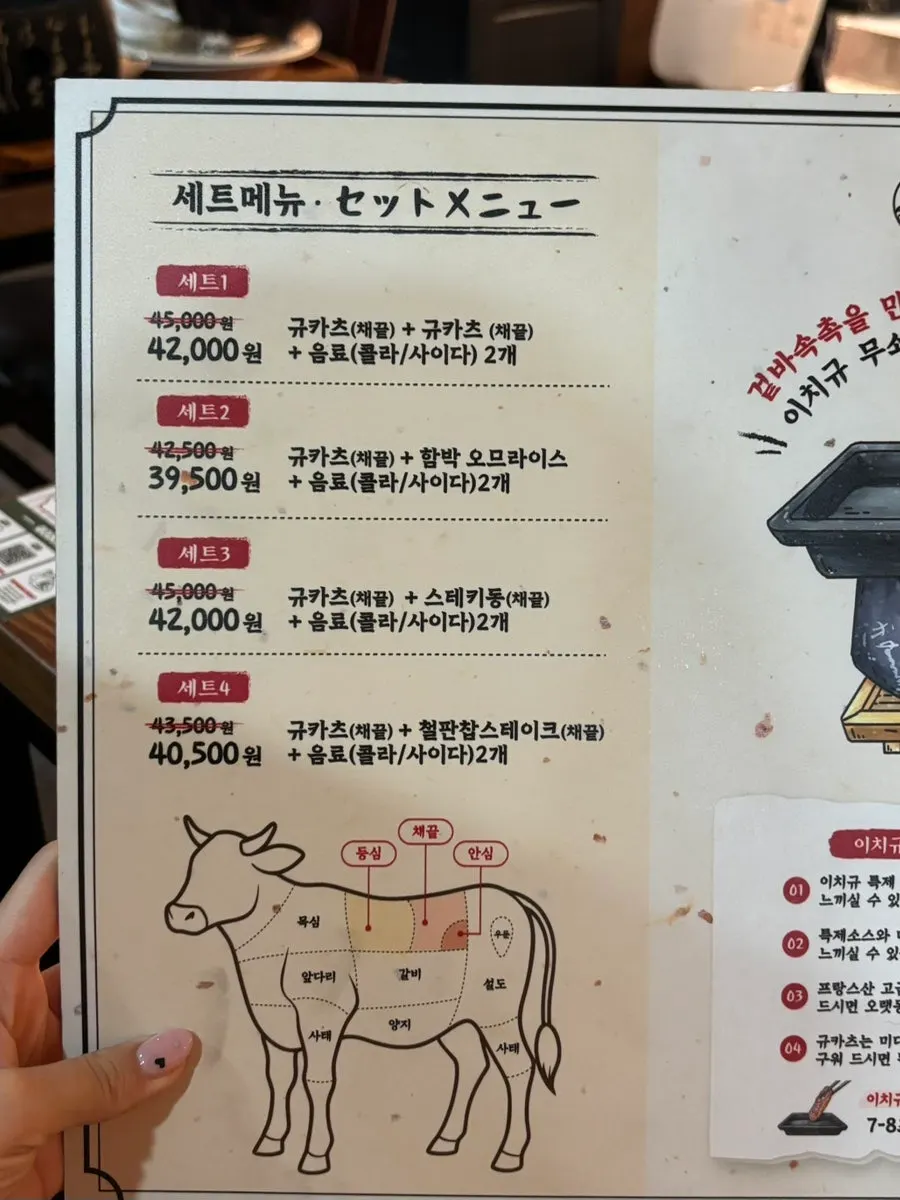 세트메뉴 · セットメニュー
세트1
45,000원
42,000원
규카츠(채끝) + 규카츠 (채끝)
+ 음료(콜라/사이다) 2개
세트2
42,500원
39,500원
규카츠(채끝) + 함박 오므라이스
+ 음료(콜라/사이다)2개
세트3
45,000원
42,000원
규카츠(채끝) + 스테키동(채끝)
+ 음료(콜라/사이다)2개
세트4
43,500원
40,500원
규카츠(채끝) + 철판찹스테이크(채끝)
+ 음료(콜라/사이다)2개
등심
채끝
안심
목심
우둔
앞다리
갈비
설도
양지
사태
사태
겉바속촉을
이치규
이치규
01
이치규 특제
느끼실 수
02
특제소스와
느끼실 수
03
프랑스산
드시면
04
규카츠는
구워 드시면
7-8